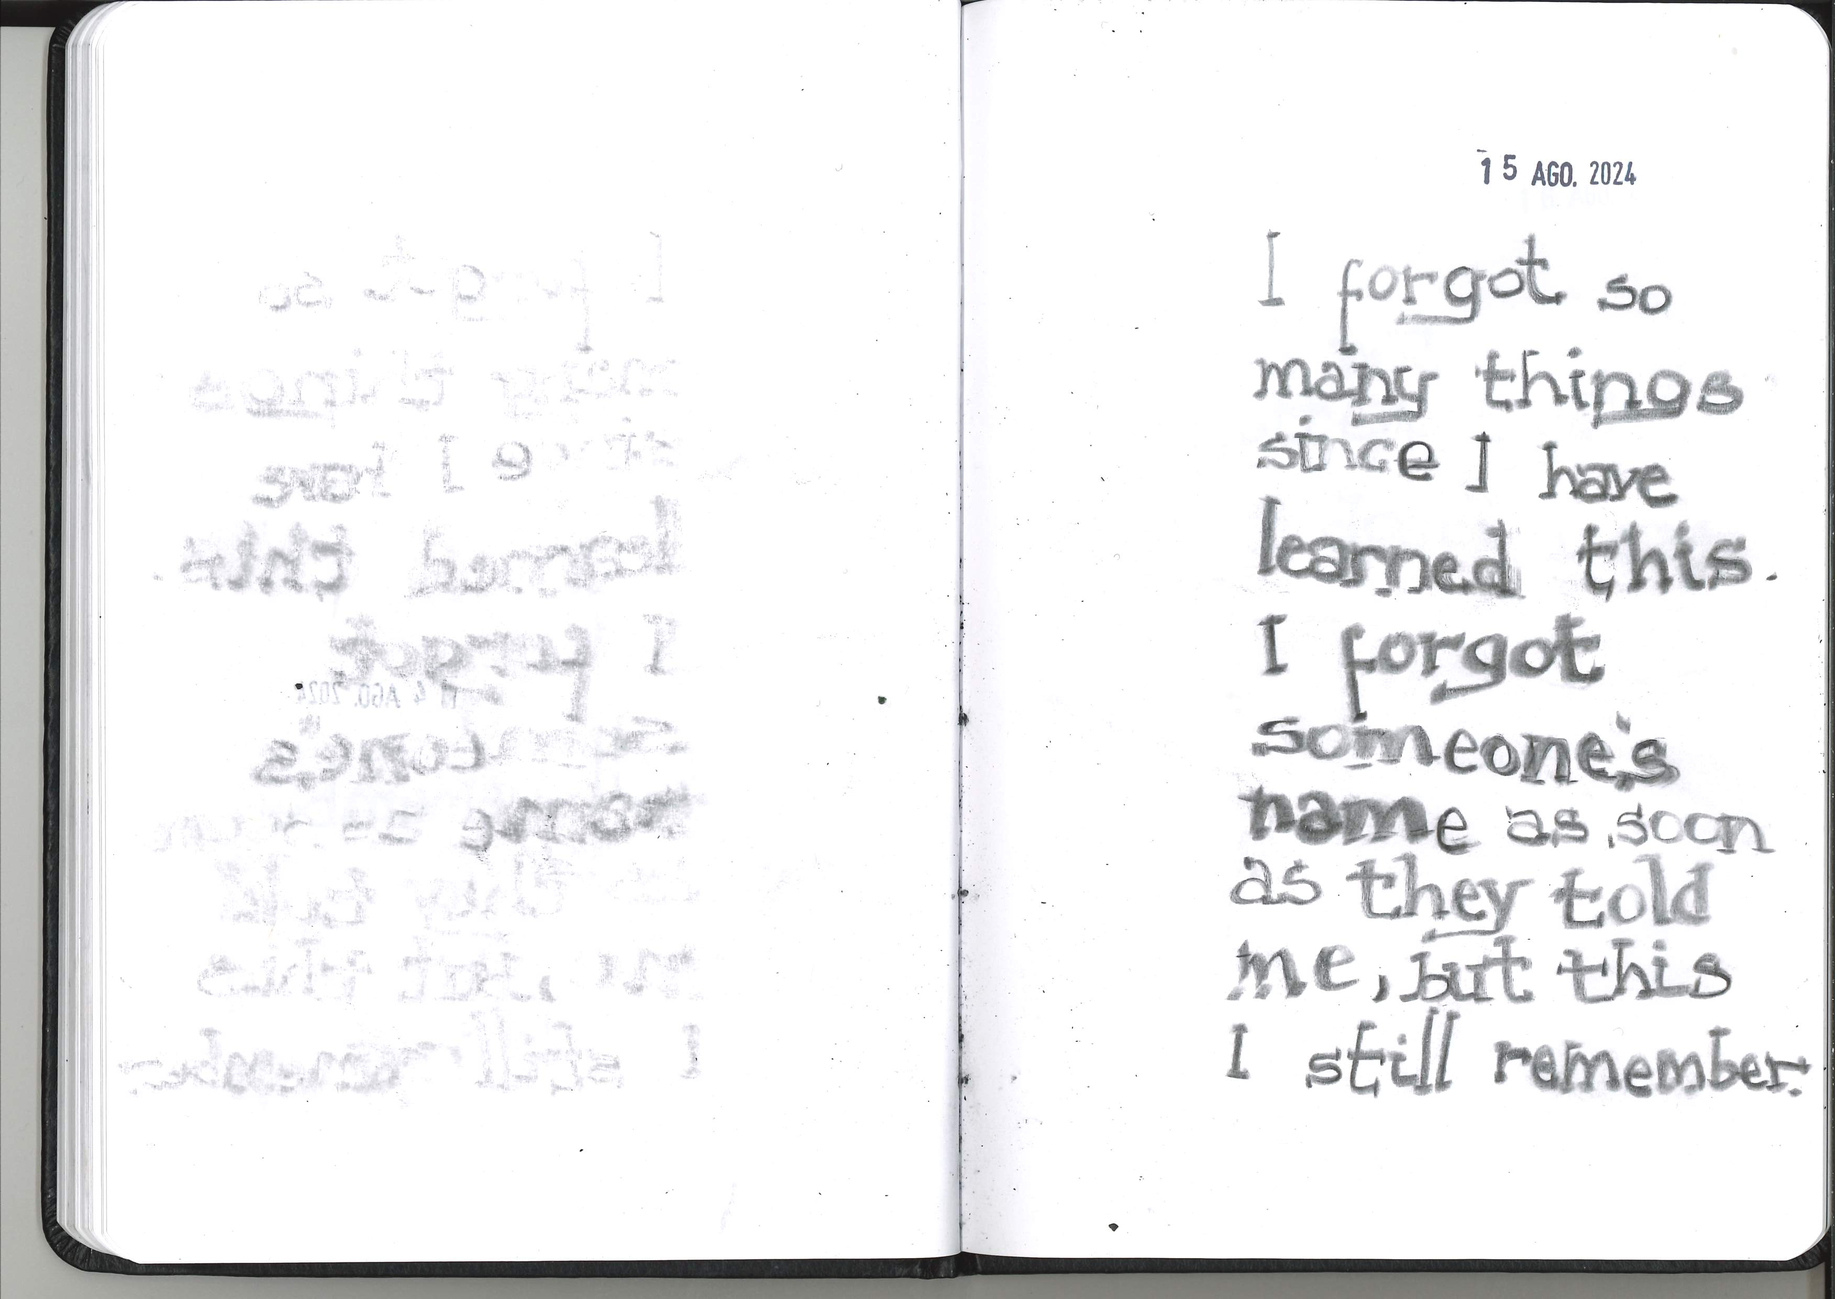 15 AGO. 2024
I forgot so
many things
since I have
learned this.
I forgot
someone's
name as soon
as they told
me, but this
I still remember.